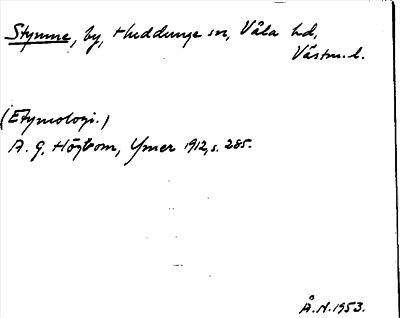 Stymne, by, Huddunge sn, Våla hd,
Västm. l.
(Etymologi.)
A. G. Högbom, Ymer 1912, s. 285.
Å. N. 1953.